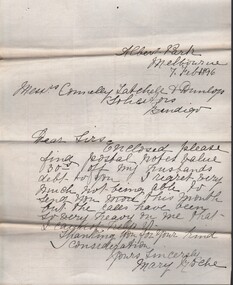 Albert Park
Melbourne
7 Feb 1896
Messrs Connelly Tatchell & Dunlop
Solicitors
Bendigo
Dear Sirs,
Enclosed please
find postal notes value
of my husbands
debt to you I regret very
much not being able to
send you more this month
but the calls have been
so very heavy on me that
Thanking you for your kind
consideration
Yours sincerely
Mary